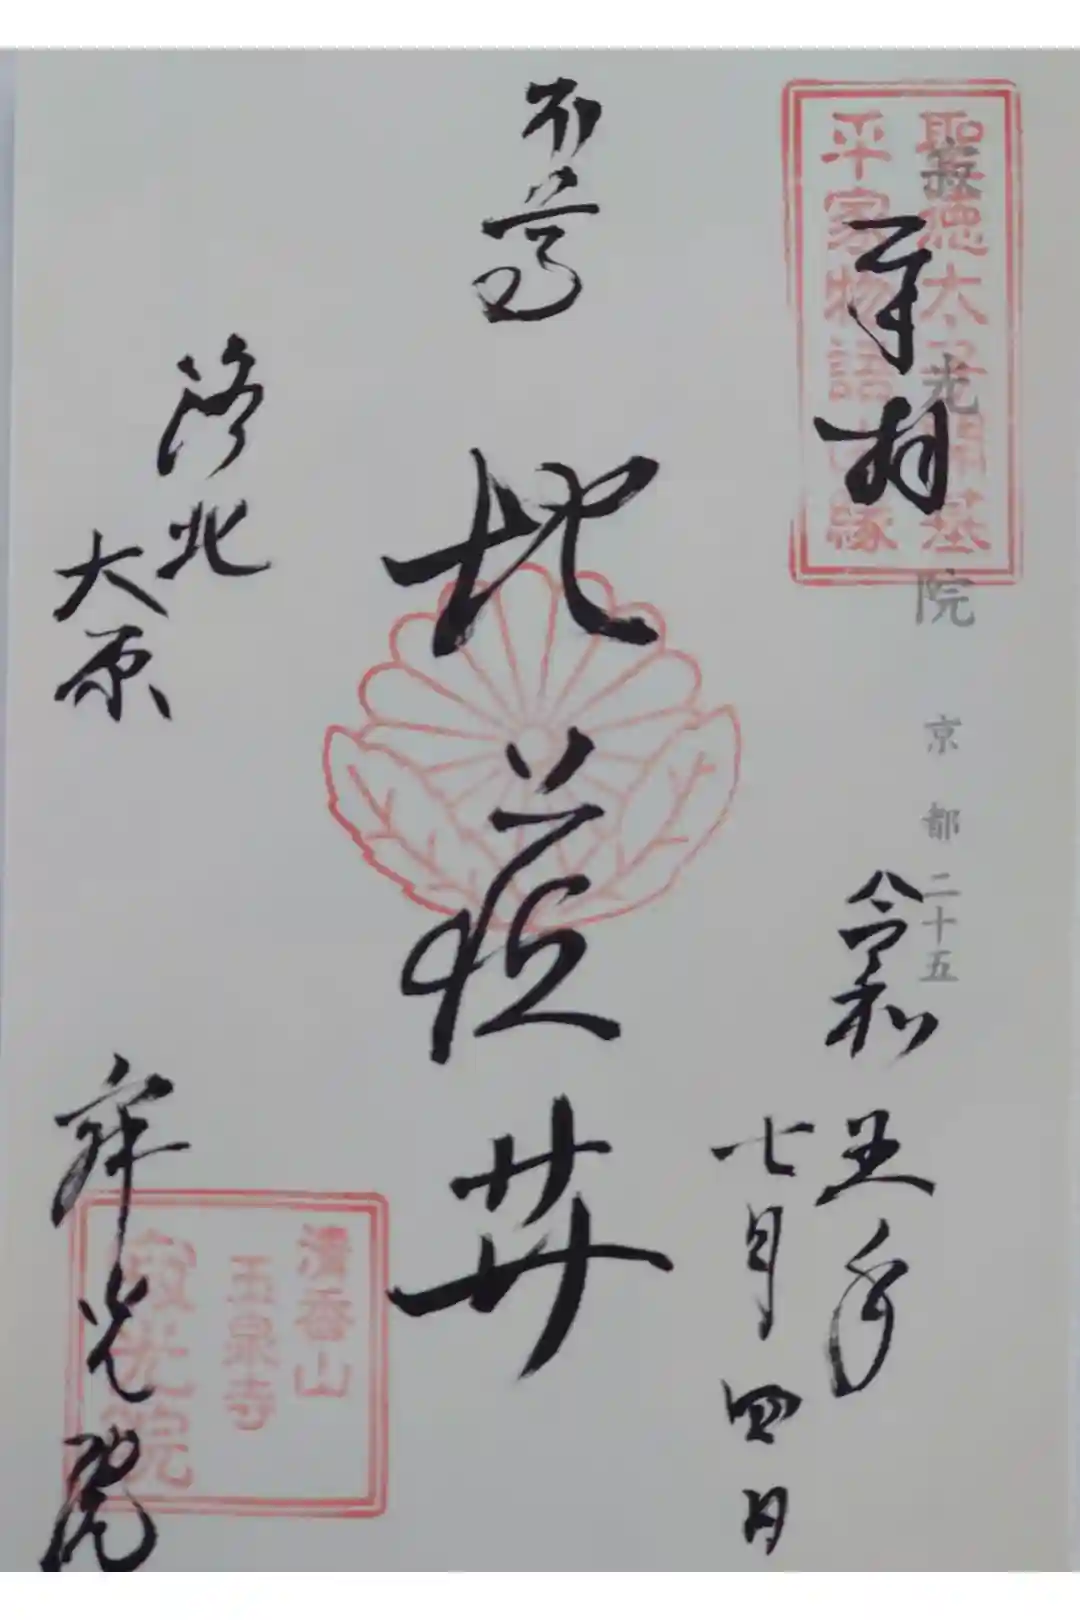 聖徳太子開基
平家物語由縁
寂光院 京都二十五
奉拝
令和五年
七月四日
本尊
地蔵𦬇
洛北
大原
寂光院
清香山
玉泉寺
寂光院